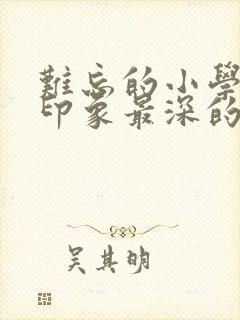 難忘的小學
印象最深的
吳其明